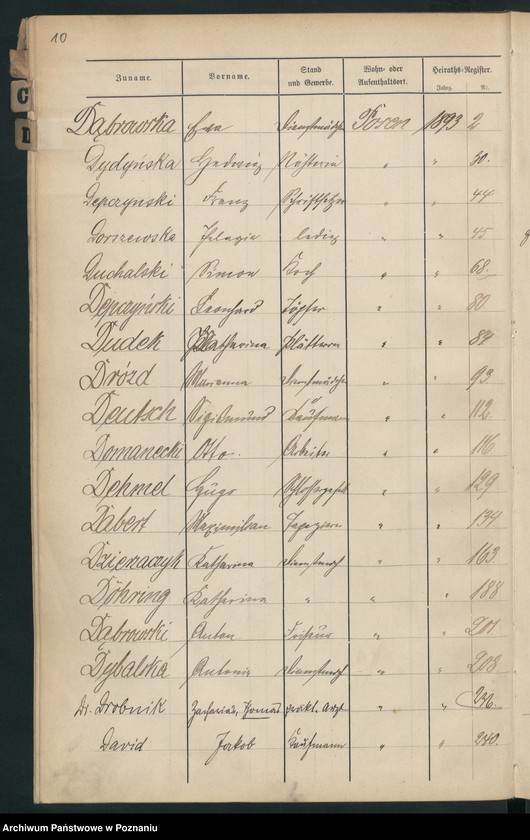 10
Zuname. Vorname. Stand und Gewerbe. Wohn- oder Aufenthaltsort. Heiraths-Register.
Jahrg. Nr.
C
D
Dąbrowska Eva Dienstmädch Posen 1893 2
Dydyńska Hedwig Nähterin " " 30.
Depczynski Franz Schriftsetzer " " 44
Dorszewska Pelagia ledig " " 45
Duchalski Simon Koch " " 68.
Depczyński Leonhard Töpfer " " 80
Dudek Katharina Plätterin " " 84
Drózd Marianna Dienstmädch " " 93
Deutsch Sigismund Kaufmann " " 112
Domanecki Otto. Arbeiter " " 116
Dehmel Hugo " " 129
Dabert Maximilian Tapezierer " " 134
Dziewaczyk Katharina Dienstmdch " " 163
Döhring Katharina " " " 188
Dąbrowski Anton Friseur " " 201
Dybalska Antonie Dienstmdch " " 208
Dr. Drobnik prakt. Arzt " " 236.
David Jakob Kaufmann " " 240.
Archiwum Państwowe w Poznaniu